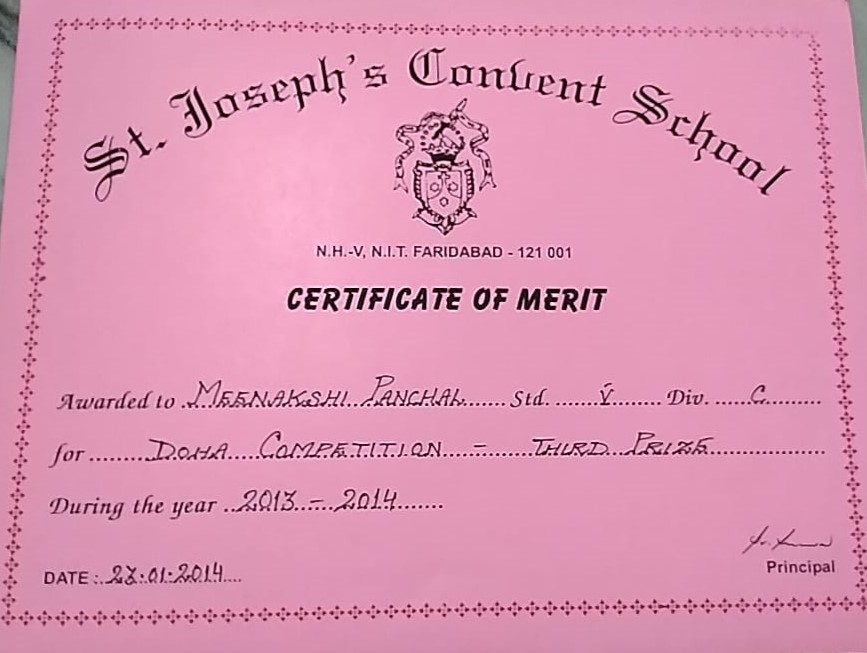 St. Joseph's Convent School
N.H.-V, N.I.T. FARIDABAD - 121 001
CERTIFICATE OF MERIT
Awarded to MEENAKSHI PANCHAL Std. V Div. C
for DOHA COMPETITION - THIRD PRIZE
During the year 2013 - 2014
DATE : 27.01.2014
Principal